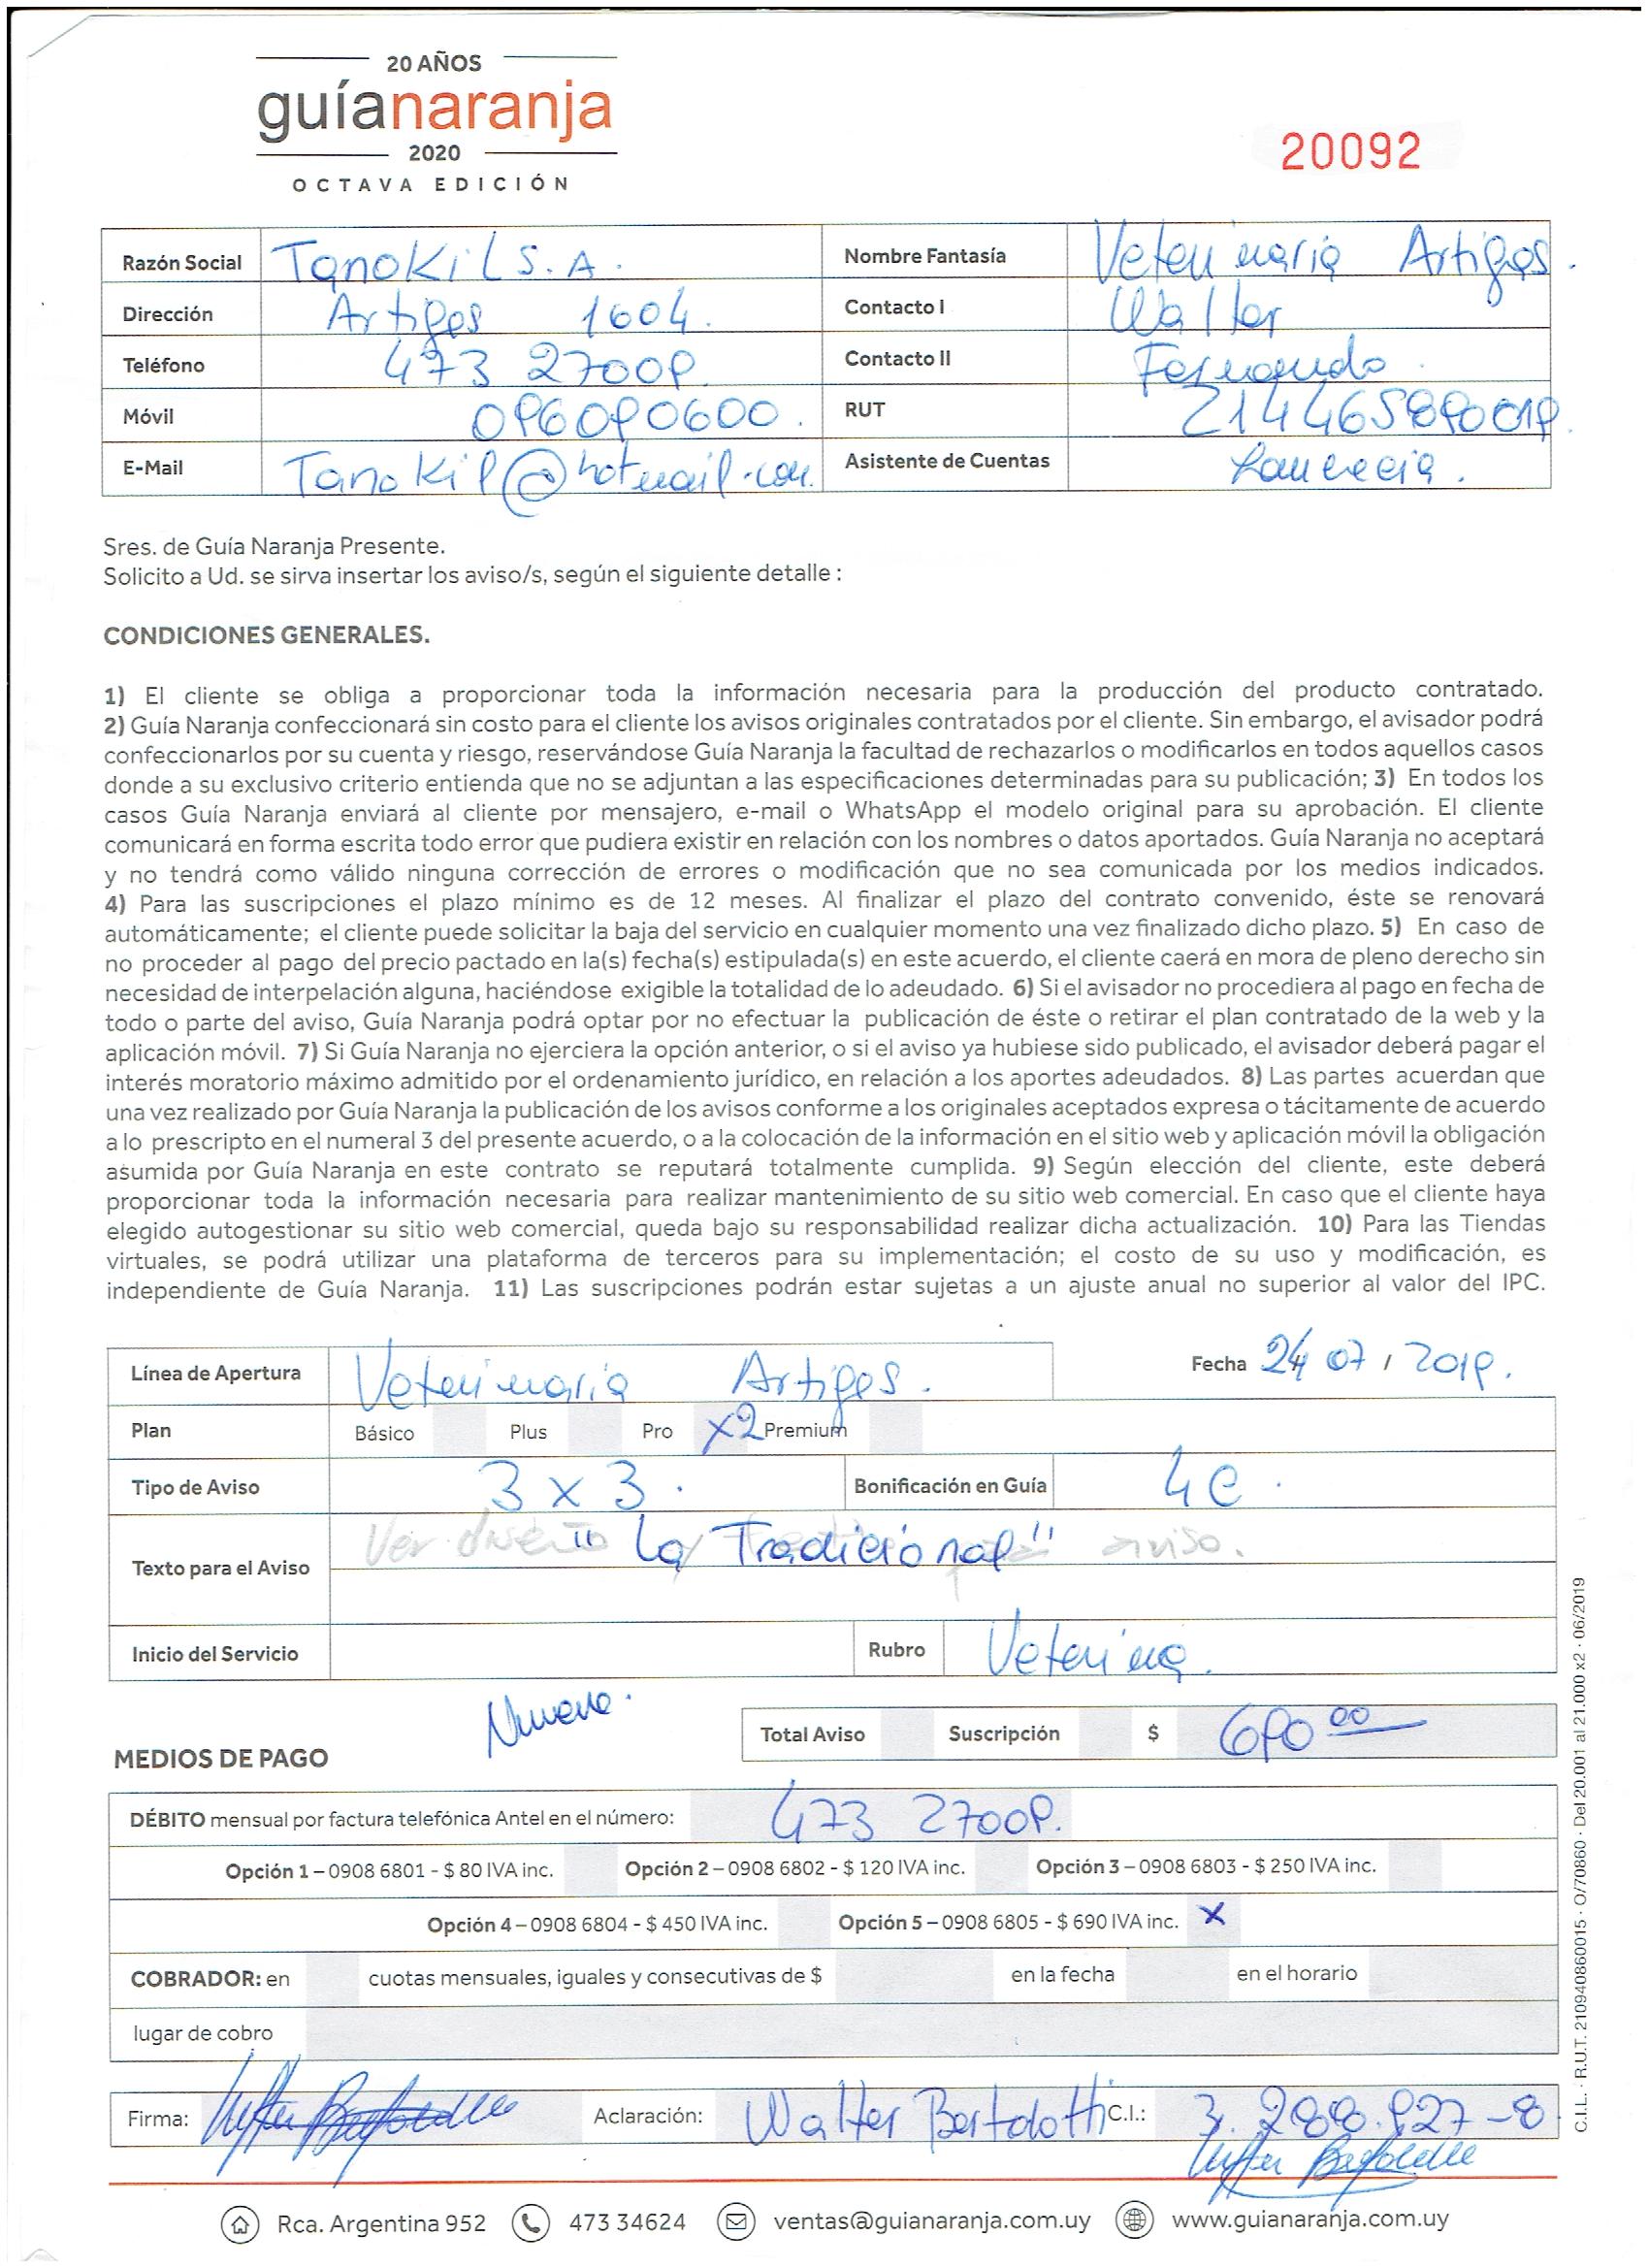 20 AÑOS
guíanaranja
2020
OCTAVA EDICIÓN
20092
Razón Social TanoKil S.A. Nombre Fantasía Veterinaria Artigas.
Dirección Artigas 1604. Contacto I Walter
Teléfono 473 27009. Contacto II Fernando.
Móvil 096090600. RUT 214465890019.
E-Mail TanoKil@hotmail.com. Asistente de Cuentas
Sres. de Guía Naranja Presente.
Solicito a Ud. se sirva insertar los aviso/s, según el siguiente detalle :
CONDICIONES GENERALES.
1) El cliente se obliga a proporcionar toda la información necesaria para la producción del producto contratado.
2) Guía Naranja confeccionará sin costo para el cliente los avisos originales contratados por el cliente. Sin embargo, el avisador podrá
confeccionarlos por su cuenta y riesgo, reservándose Guía Naranja la facultad de rechazarlos o modificarlos en todos aquellos casos
donde a su exclusivo criterio entienda que no se adjuntan a las especificaciones determinadas para su publicación; 3) En todos los
casos Guía Naranja enviará al cliente por mensajero, e-mail o WhatsApp el modelo original para su aprobación. El cliente
comunicará en forma escrita todo error que pudiera existir en relación con los nombres o datos aportados. Guía Naranja no aceptará
y no tendrá como válido ninguna corrección de errores o modificación que no sea comunicada por los medios indicados.
4) Para las suscripciones el plazo mínimo es de 12 meses. Al finalizar el plazo del contrato convenido, éste se renovará
automáticamente; el cliente puede solicitar la baja del servicio en cualquier momento una vez finalizado dicho plazo. 5) En caso de
no proceder al pago del precio pactado en la(s) fecha(s) estipulada(s) en este acuerdo, el cliente caerá en mora de pleno derecho sin
necesidad de interpelación alguna, haciéndose exigible la totalidad de lo adeudado. 6) Si el avisador no procediera al pago en fecha de
todo o parte del aviso, Guía Naranja podrá optar por no efectuar la publicación de éste o retirar el plan contratado de la web y la
aplicación móvil. 7) Si Guía Naranja no ejerciera la opción anterior, o si el aviso ya hubiese sido publicado, el avisador deberá pagar el
interés moratorio máximo admitido por el ordenamiento jurídico, en relación a los aportes adeudados. 8) Las partes acuerdan que
una vez realizado por Guía Naranja la publicación de los avisos conforme a los originales aceptados expresa o tácitamente de acuerdo
a lo prescripto en el numeral 3 del presente acuerdo, o a la colocación de la información en el sitio web y aplicación móvil la obligación
asumida por Guía Naranja en este contrato se reputará totalmente cumplida. 9) Según elección del cliente, este deberá
proporcionar toda la información necesaria para realizar mantenimiento de su sitio web comercial. En caso que el cliente haya
elegido autogestionar su sitio web comercial, queda bajo su responsabilidad realizar dicha actualización. 10) Para las Tiendas
virtuales, se podrá utilizar una plataforma de terceros para su implementación; el costo de su uso y modificación, es
independiente de Guía Naranja. 11) Las suscripciones podrán estar sujetas a un ajuste anual no superior al valor del IPC.
Línea de Apertura Veterinaria Artigas. Fecha 24 07 / 2019.
Plan Básico Plus Pro X2 Premium
Tipo de Aviso 3 x 3. Bonificación en Guía 4C.
Texto para el Aviso Ver diseño "La Tradicional" aviso.
Inicio del Servicio Rubro
Total Aviso Suscripción $ 690 00
MEDIOS DE PAGO
DÉBITO mensual por factura telefónica Antel en el número: 473 27009.
Opción 1 – 0908 6801 - $ 80 IVA inc. Opción 2 – 0908 6802 - $ 120 IVA inc. Opción 3 – 0908 6803 - $ 250 IVA inc.
Opción 4 – 0908 6804 - $ 450 IVA inc. Opción 5 – 0908 6805 - $ 690 IVA inc. X
COBRADOR: en cuotas mensuales, iguales y consecutivas de $ en la fecha en el horario
lugar de cobro
Firma: Aclaración: Walter Bertolotti C.I.: 3.288.927-8
Rca. Argentina 952 473 34624 ventas@guianaranja.com.uy www.guianaranja.com.uy
C.I.L. · R.U.T. 210940860015 · O/70860 · Del 20.001 al 21.000 x2 · 06/2019